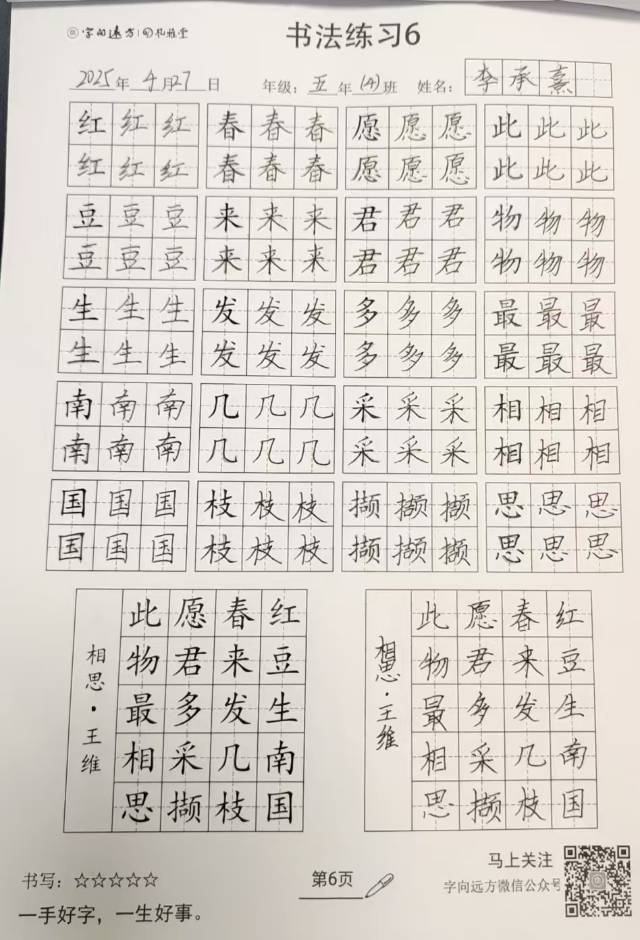 字向远方
书法练习6
2025年4月27日 年级:五年(4)班 姓名:李承熹
红红红 春春春 愿愿愿 此此此
红红红 春春春 愿愿愿 此此此
豆豆豆 来来来 君君君 物物物
豆豆豆 来来来 君君君 物物物
生生生 发发发 多多多 最最最
生生生 发发发 多多多 最最最
南南南 几几几 采采采 相相相
南南南 几几几 采采采 相相相
国国国 枝枝枝 撷撷撷 思思思
国国国 枝枝枝 撷撷撷 思思思
红豆生南国
春来发几枝
愿君多采撷
此物最相思
相思·王维
红豆生南国
春来发几枝
愿君多采撷
此物最相思
相思·王维
书写:☆☆☆☆☆
一手好字,一生好事。
第6页
马上关注
字向远方微信公众号